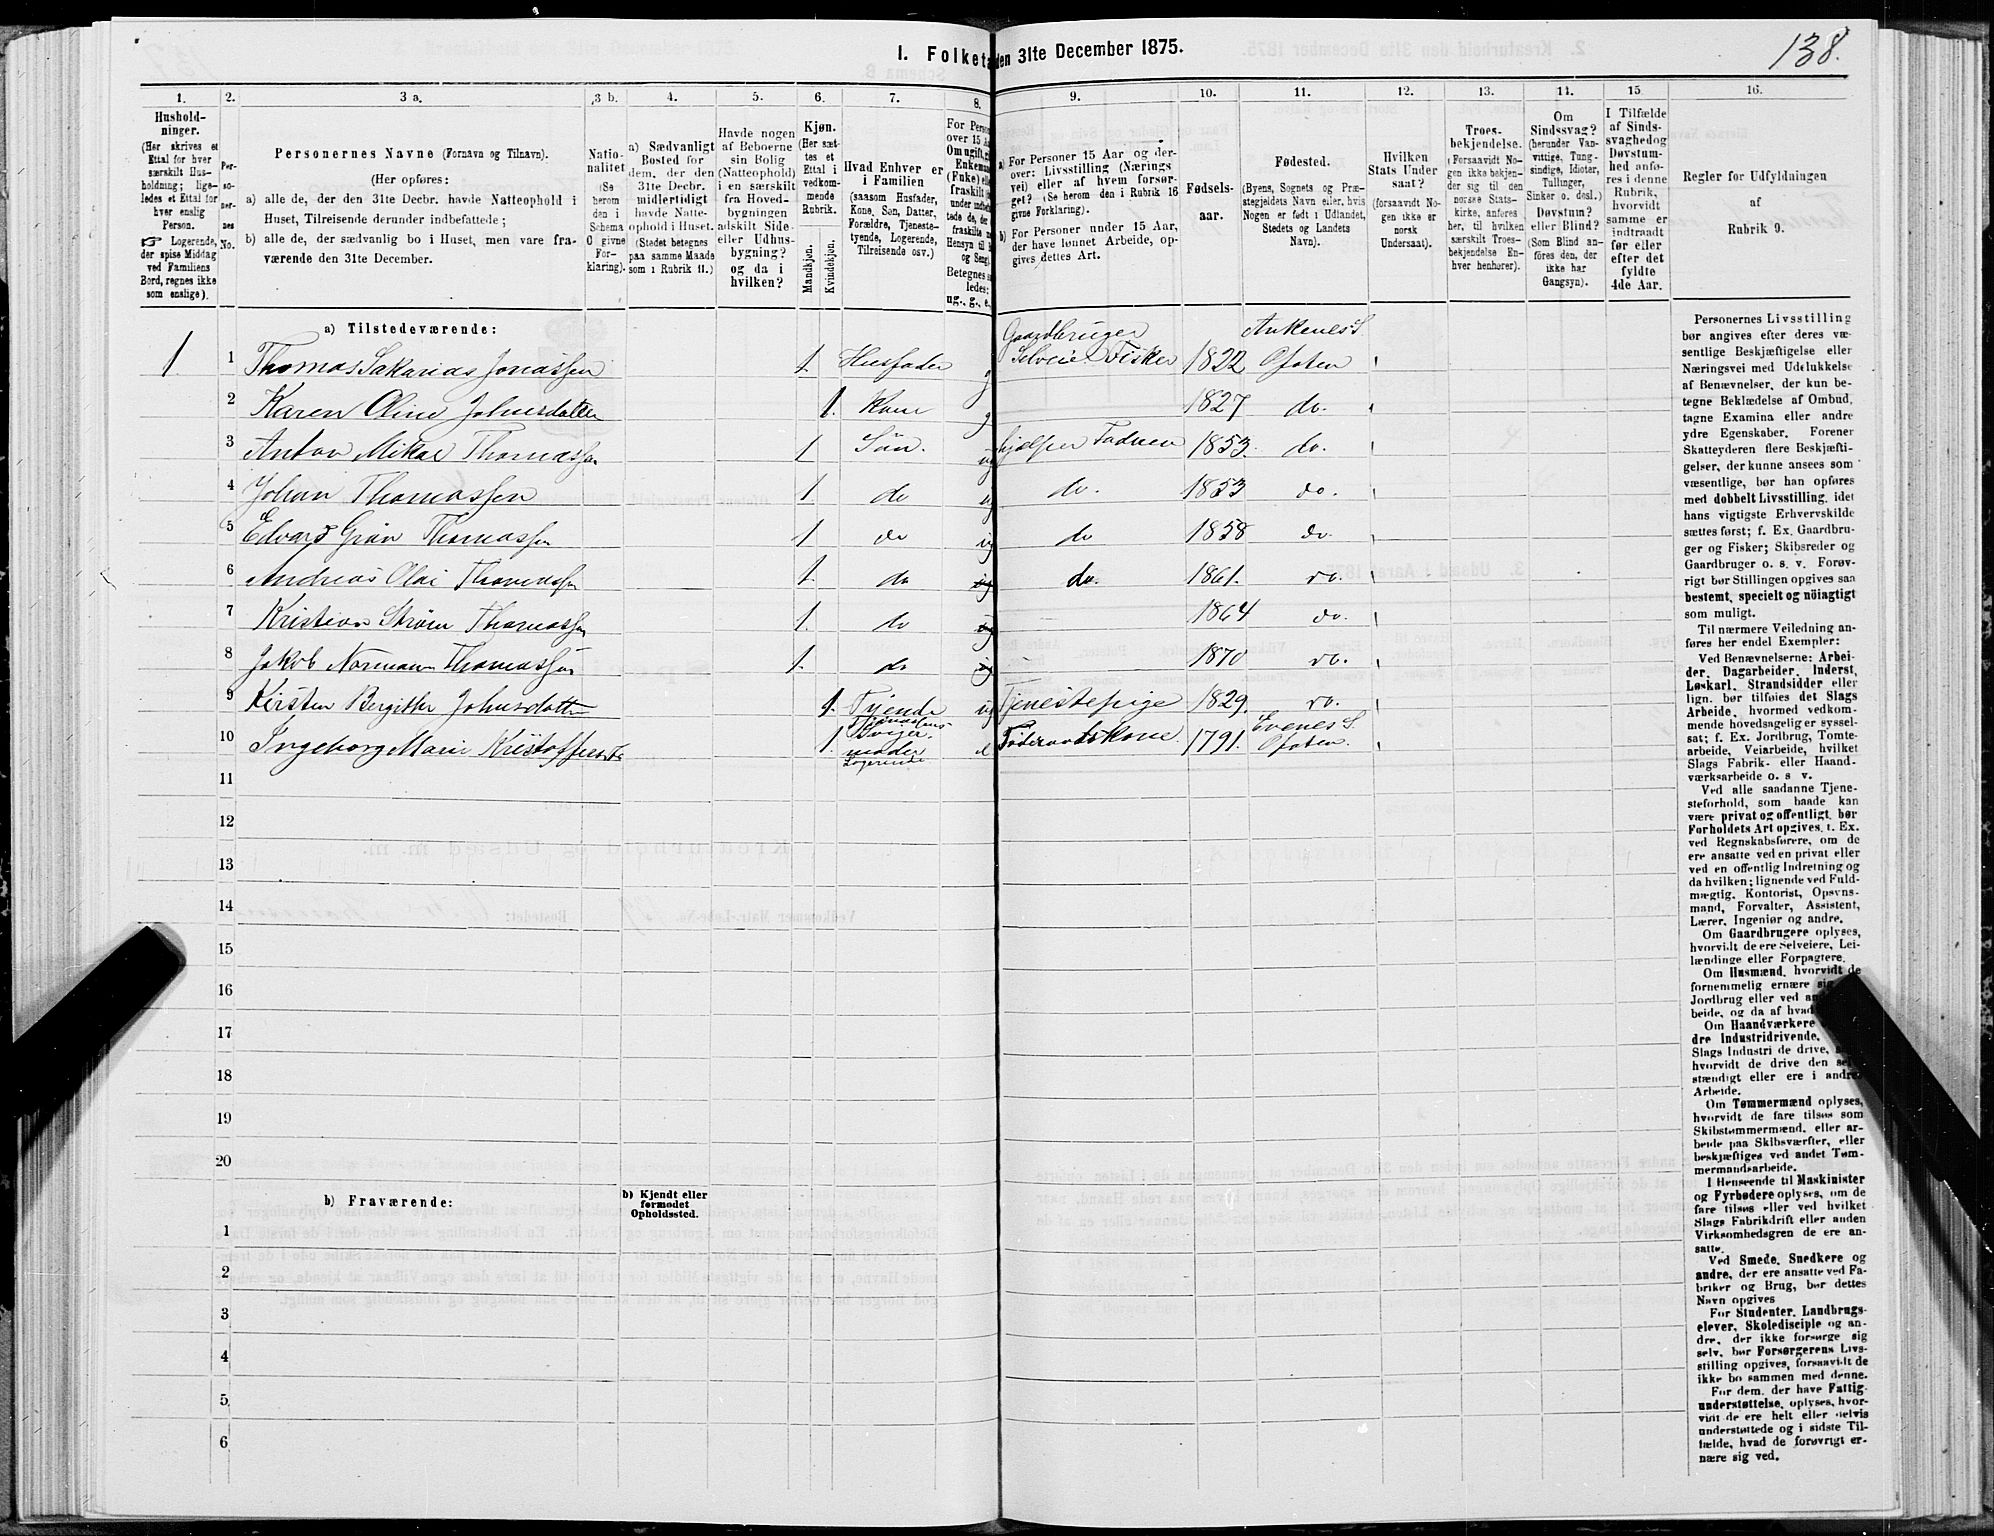 138.
I. Folketæ den 31te December 1875.
1. 2. 3 a. 3 b. 4. 5. 6. 7. 8. 9. 10. 11. 12. 13. 14. 15 16.
Hushold-
ninger.
(Her skrives et
Ettal for hver
særskilt Hus-
holdning; lige-
ledes et Ettal for
hver enslig
Person.
☞ Logerende,
der spise Middag
ved Familiens
Bord, regnes ikke
som enslige).
Per-
so-
ner-
nes
No.
Personernes Navne (Fornavn og Tilnavn).
(Her opføres:
a) alle de, der den 31te Decbr. havde Natteophold i
Huset, Tilreisende derunder indbefattede;
b) alle de, der sædvanlig bo i Huset, men vare fra-
værende den 31te December.
Natio-
nalitet
(Se
herom
den i
Schema
O givne
For-
klaring).
a) Sædvanligt
Bosted for
dem, der den
31te Decbr.
midlertidigt
havde Natte-
ophold i Huset.
(Stedet betegnes
paa samme Maade
som i Rubrik 11.)
Havde nogen
af Beboerne
sin Bolig
(Natteophold)
i en særskilt
fra Hoved-
bygningen
adskilt Side-
eller Udhus-
bygning?
og da i
hvilken?
Kjøn.
(Her sæt-
tes et
Ettal i
vedkom-
mende
Rubrik.
Mandkjøn.
Kvindekjøn.
Hvad Enhver er
i Familien
(saasom Husfader,
Kone, Søn, Datter,
Forældre, Tjeneste-
tyende, Logerende,
Tilreisende osv.)
For Perso
over 15 A
Om ugift, g
Enkeman
(Fuke) ell
fraskilt
under indbe
tede de, de
fraskilte
Hensyn til
og Seng
Betegnes s
ledes:
ug., g., e.
a) For Personer 15 Aar og der-
over: Livsstilling (Nærings
vei) eller af hvem forsør-
get? (Se herom den i Rubrik 16
givne Forklaring.)
b) For Personer under 15 Aar,
der have lønnet Arbeide, op-
gives dettes Art.
Fødsels-
aar.
Fødested.
(Byens, Sognets og Præ-
stegjeldets Navn eller, hvis
Nogen er født i Udlandet,
Stedets og Landets
Navn).
Hvilken
Stats Under
saat?
(forsaavidt No-
gen ikke er
norsk
Undersaat).
Troes-
bekjendelse.
(Forsaavidt No-
gen ikke bekjen-
der sig til den
norske Stats-
kirke, anføres
her, til hvilken
særskilt Troes-
bekjendelse En-
hver henhører).
Om
Sindssvag?
(herunder Van-
vittige, Tung-
sindige, Idioter,
Tullinger,
Sinker o. desl.)
Døvstum?
eller Blind?
(Som Blind an-
føres den, der
ikke har
Gangsyn).
I Tilfælde
af Sinds-
svaghed og
Døvstum-
hed anfø-
res i denne
Rubrik,
hvorvidt
samme er
indtraadt
før eller
efter det
fyldte
4de Aar.
Regler for Udfyldningen
af
Rubrik 9.
a) Tilstedeværende:
1 1 Thomas Sakarias Jonassen 1. Husfader g Gaardbruger Selveier Fisker 1822 Ankenes S. Ofoten
2 Karen Oline Johnsdatter 1. Kone g 1827 do.
3 Anton Mikal Thomassen 1 Søn. ug hjelper Faderen 1853. do.
4 Johan Thomassen 1. do ug do. 1853 do.
5 Edvard Grøn Thomassen 1. do ug do 1858 do.
6 Andreas Olai Thomassen 1. do ug do. 1861. do.
7 Kristian Strøm Thomassen 1. do ug 1864 do.
8 Jakob Norman Thomassen 1. do ug 1870 do.
9 Kirsten Bergitte Johnsdatter 1. Tjende ug Tjenestepige 1829. do.
10 Ingeborg Marie Kristoffersd 1. Sviger-moder Logerende e Føderaadskone 1791. Evenes S. Ofoten.
11
12
13
14
15
16
17
18
19
20
b) Fraværende:
b) Kjendt eller
formodet
Opholdssted.
1
2
3
4
5
6
Personernes Livsstilling
bør angives efter deres væ-
sentlige Beskjæftigelse eller
Næringsvei med Udelukkelse
af Benævnelser, der kun be-
tegne Beklædelse af Ombud,
tagne Examina eller andre
ydre Egenskaber. Forener
Skatteyderen flere Beskjæfti-
gelser, der kunne ansees som
væsentlige, bør han opføres
med dobbelt Livsstilling, idet
hans vigtigste Erhvervskilde
sættes først; f. Ex. Gaardbru-
ger og Fisker; Skibsreder og
Gaardbruger o. s. v. Forøv-
rigt bør Stillingen opgives saa
bestemt, specielt og nöiagtigt
som muligt.
Til nærmere Veiledning an-
føres her endel Exempler:
Ved Benævnelserne: Arbei-
der, Dagarbeider, Inderst,
Løskarl, Strandsidder eller
lign. bør tilføies det Slags
Arbeide, hvormed vedkom-
mende hovedsagelig er syssel-
sat; f. Ex. Jordbrug, Tomte-
arbeide, Veiarbeide, hvilket
Slags Fabrik- eller Haand-
værksarbeide o. s v.
Ved alle saadanne Tjene-
steforhold, som baade kan
være privat og offentligt, bør
Forholdets Art opgives, t. Ex.
ved Regnskabsførere, om de
ere ansatte ved en privat eller
ved en offentlig Indretning og
da hvilken; lignende ved Fuld-
mægtig, Kontorist, Opsyns-
mand, Forvalter, Assistent,
Lærer, Ingeniør og andre.
Om Gaardbrugere oplyses,
hvorvidt de ere Selveiere, Lei-
lændinge eller Forpagtere.
Om Husmænd, hvorvidt de
fornemmelig ernære sig
Jordbrug eller ved an
beide, og da af hvad
Om Haandværkere
dre Industridrivende,
Slags Industri de drive,
hvorvidt de drive den sel
stændigt eller ere i andre
Arbeide.
Om Tømmermænd oplyses,
hvorvidt de fare tilsøs som
Skibstømmermænd, eller ar-
beide paa Skibsværfter, eller
beskjæftiges ved andet Tøm-
mermandsarbeide.
I Henseende til Maskinister
og Fyrbødere oplyses, om de
fare tilsøs eller ved hvilket
Slags Fabrikdrift eller anden
Virksomhedsgren de ere an-
satte.
Ved Smede, Snedkere og
andre, der ere ansatte ved Fa-
briker og Brug, bør dettes
Navn opgives
For Studenter, Landbrugs-
elever, Skoledisciple og an-
dre, der ikke forsørge sig
selv, bør Forsørgerens Livs-
stilling opgives, forsaavidt de
ikke bo sammen med denne.
For dem, der have Fattig-
understøttelse, oplyses, hvor-
vidt de ere helt eller delvis
understøttede og i sidste Til-
fælde, hvad de forøvrigt er-
nære sig ved.